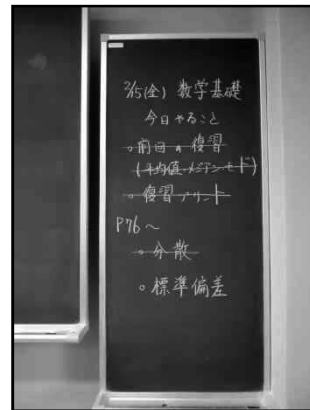 2/15(金) 数学基礎
今日やること
○前回の復習
(平均値・メジアン・モード)
○復習プリント
P76〜
○分散
○標準偏差